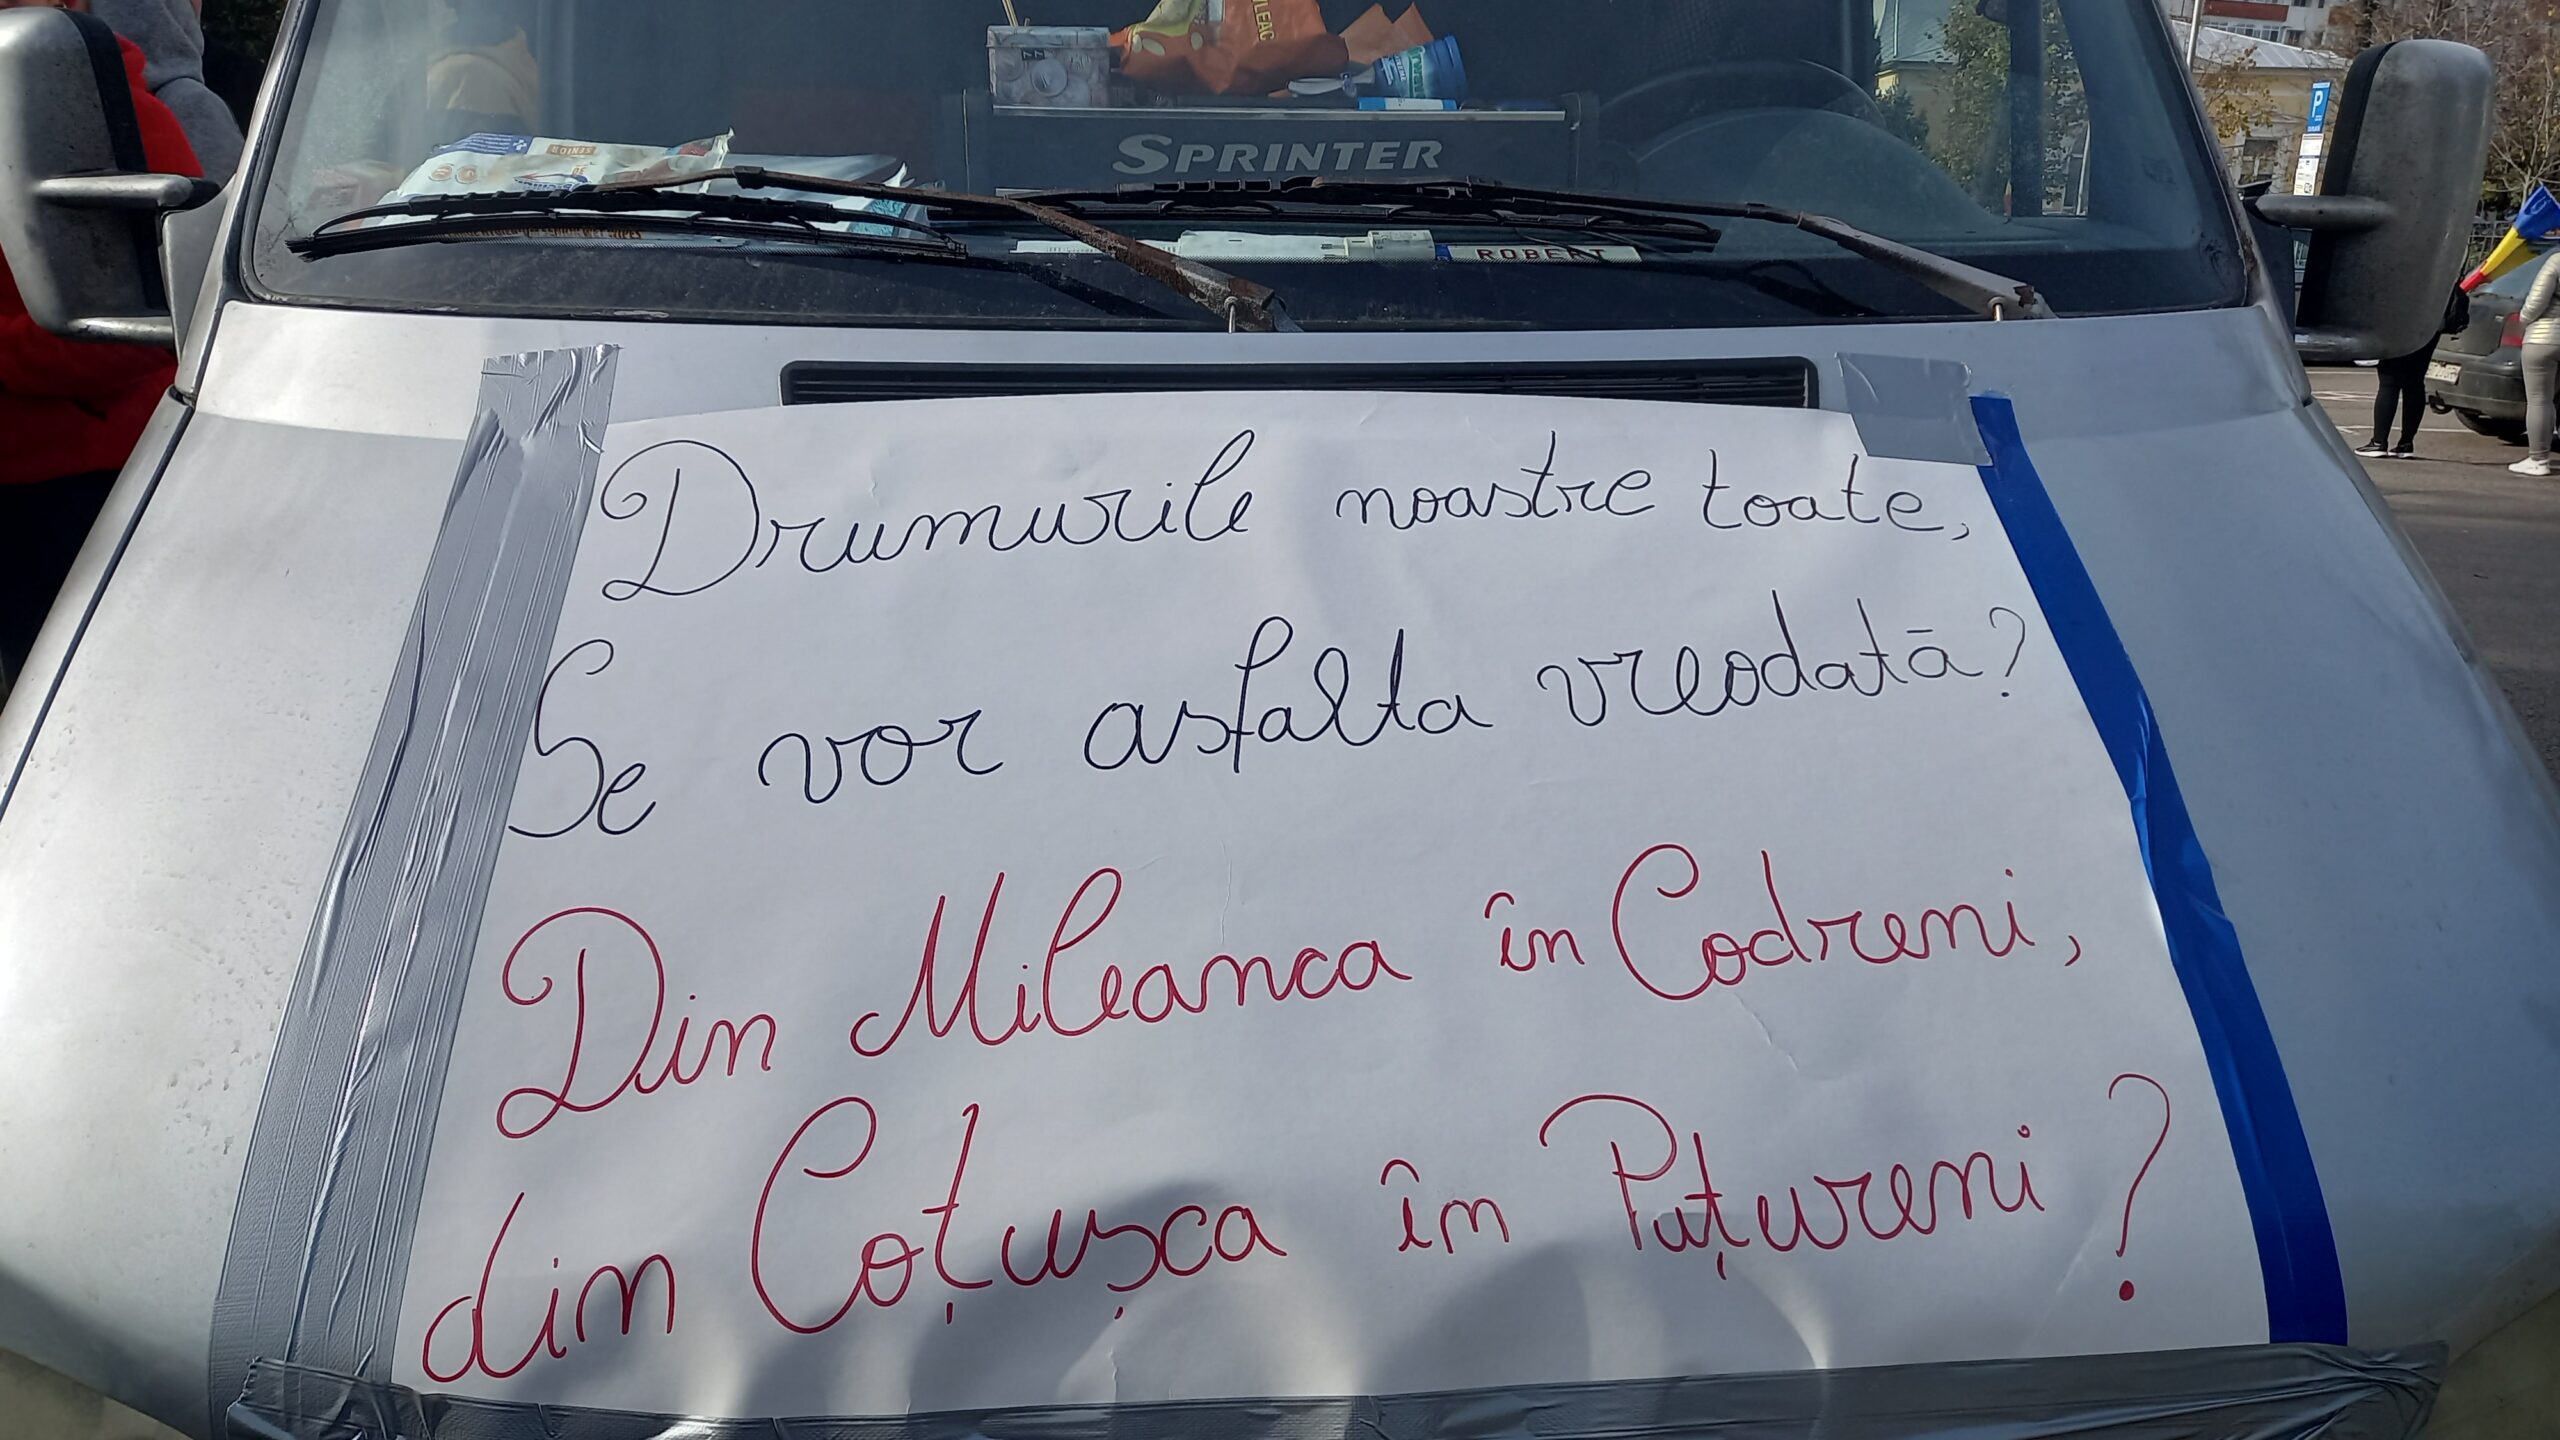 SPRINTER
SENIOR
ROBERT
P
Drumurile noastre toate,
Se vor asfalta vreodată?
Din Mileanca în Codreni,
din Coțușca în Puțureni?